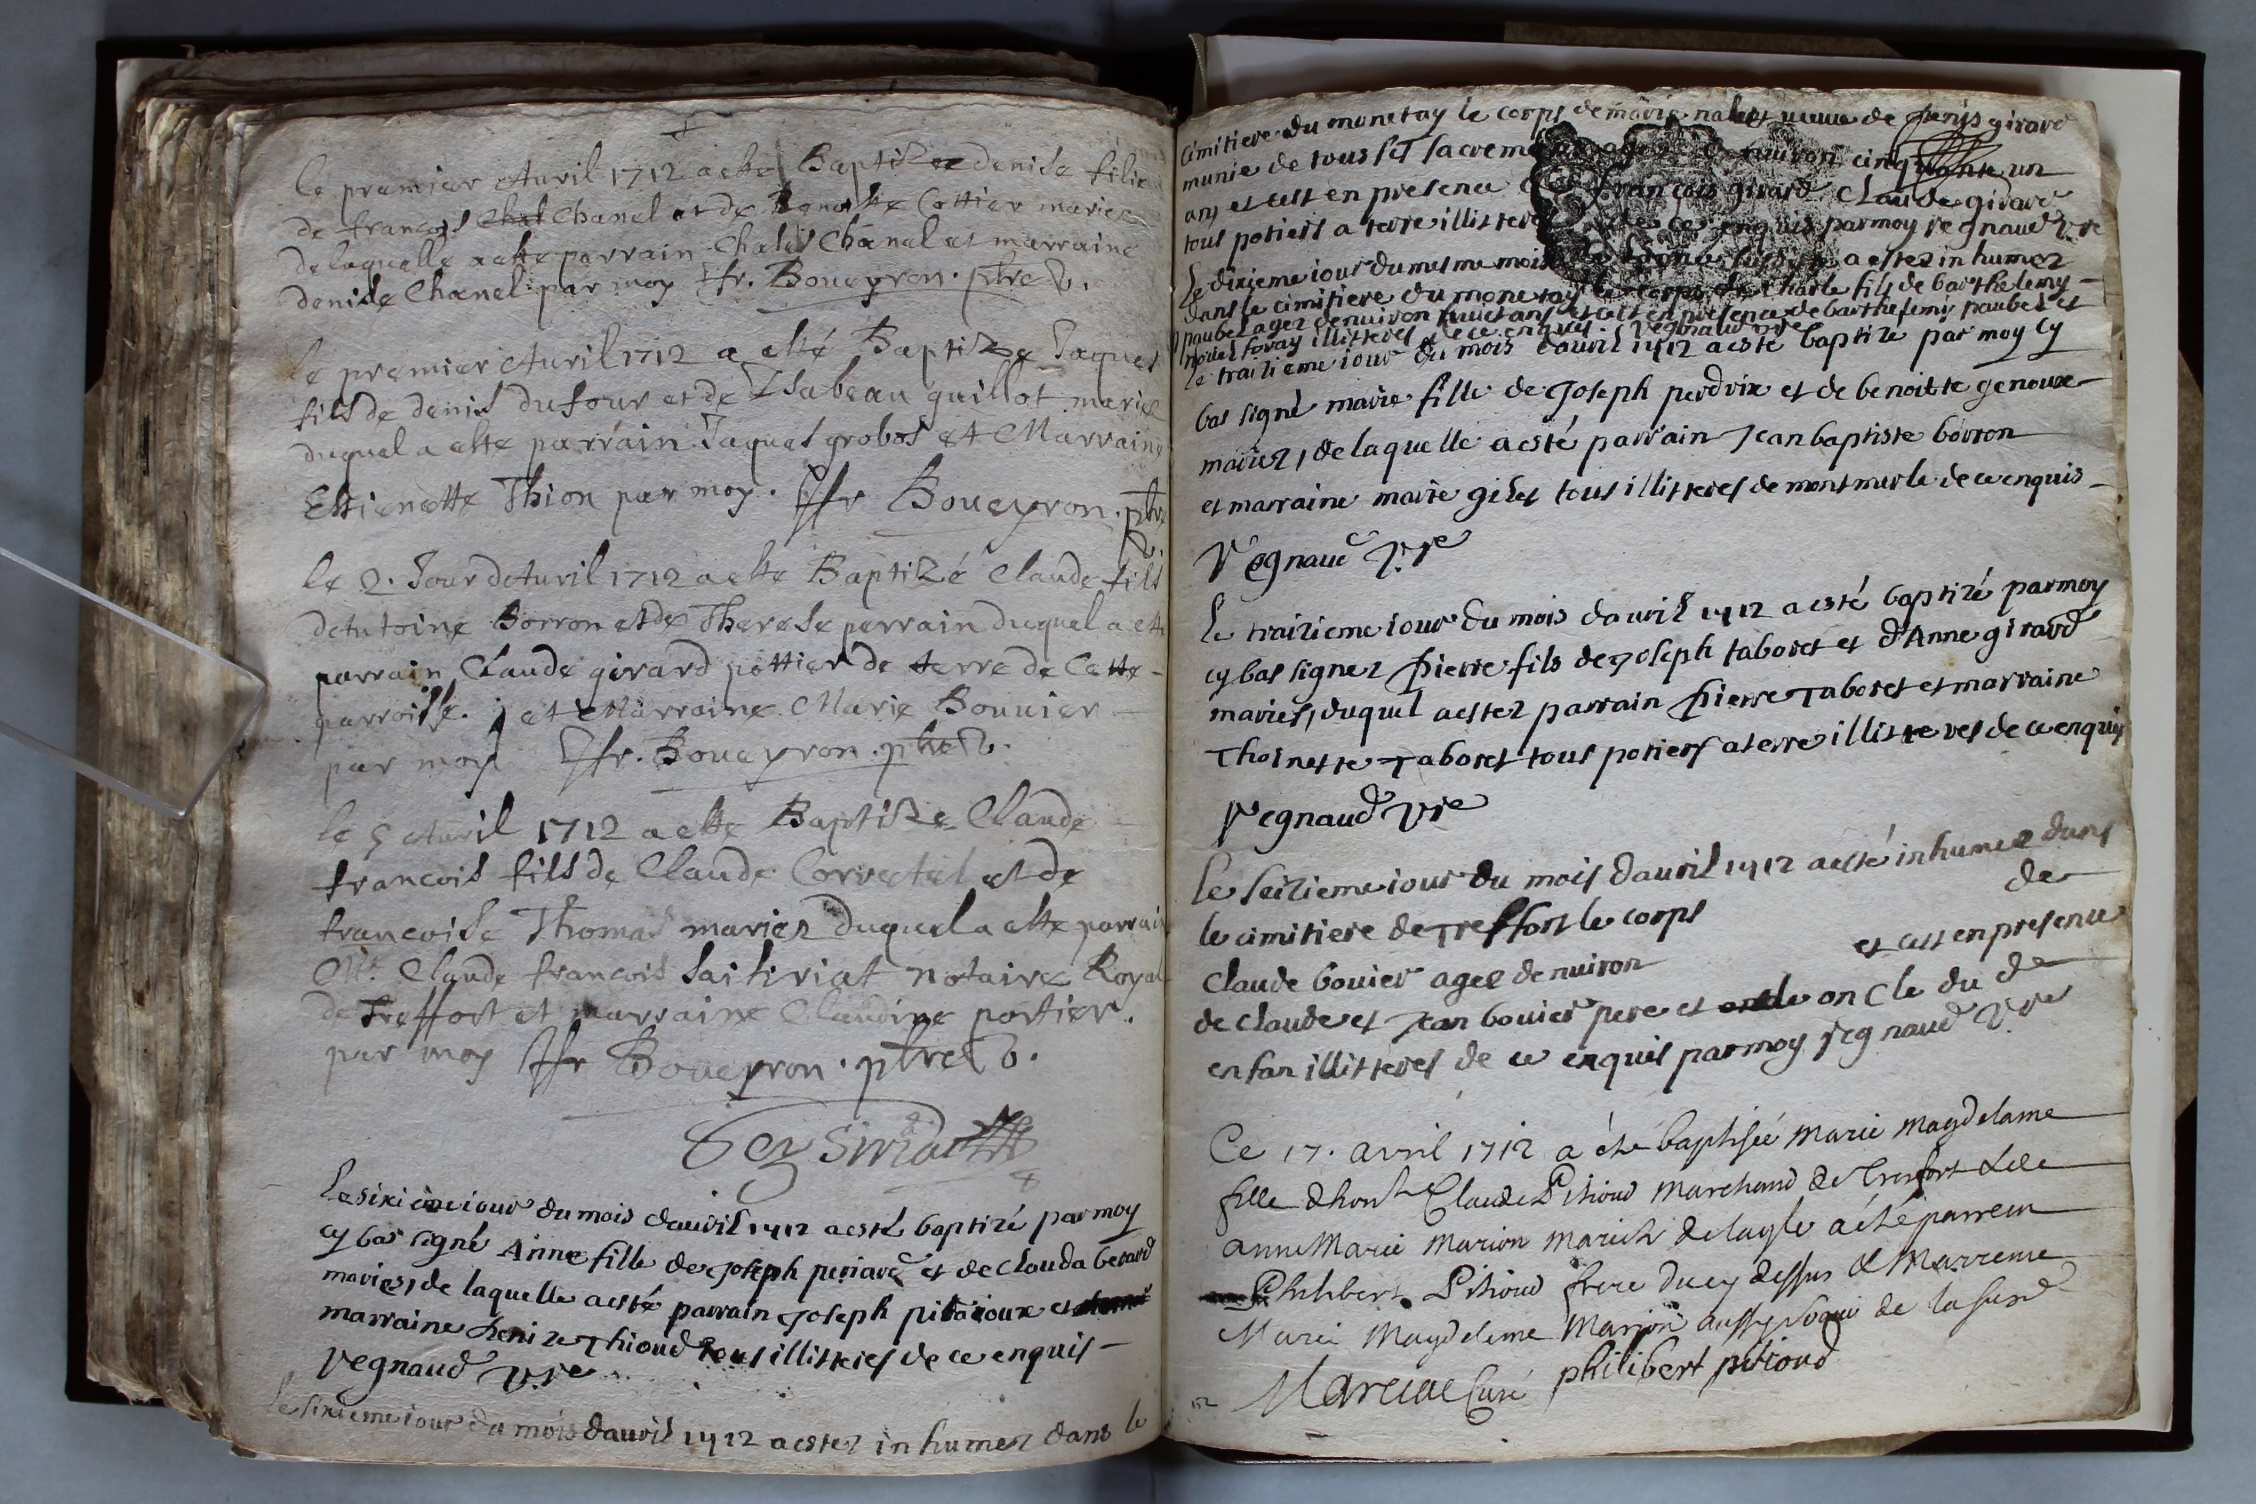 le premier Auril 1712 a este Baptizee denise fille
de francois Chanel et de Benoiste Cottier mariez
de laquelle a este parrain Chales Chanel et marraine
denise Chanel par moy Jfr. Boueyron. ptre V.
le premier Auril 1712 a esté Baptize Jaques
fils de denis dufour et de Isabeau guillot mariez
duquel a este parrain Jaques grobos et Marraine
Estienette Thion par moy. Jfr Boueyron. ptre
V.
le 2. Jour dAuril 1712 a este Baptizé Claude fils
dAntoine Borron et de Therese perrain duquel a este
parrain Claude girard pottier de terre de Cette
parroisse. et Marraine Marie Bouuier
par moy Jfr. Boueyron. ptre V.
le 5 Auril 1712 a este Baptize Claude
francois fils de Claude et de
francoise Thomas mariez duquel a este parrain
Mr. Claude francois notaire Royal
de treffort et marraine Claudine portier.
par moy Jfr Boueyron. ptre V.
le sixieme iour du mois dauvil 1712 a esté baptizé par moy
cy bas signé Anne fille de Joseph periard et de Clauda berard
mariez, de laquelle a esté parrain Joseph pitioux et
marraine deni ze Thioud tous illitteres de ce enquis
regnaud V.re
le sixieme iour du mois dauvil 1712 a estez in humez dans le
Cimitiere du monetay le corps de marie veuue de denis girard
munie de tous set sacreme agez denuiron cinquante un
ans et cest en presence de francois girard Claude girard
tous potiers a terre illitteres de ce enquis par moy regnaud V.re
Le dixieme iour du mesme mois a estez in humez
dans le cimitiere du monetay le corps de charle fils de barthelemy
paubel agez denuiron huict ans et cest en presence de barthelemy paubel et
noel foray illitteres de ce enquis. regnaud V.re
le traizieme iour du mois dauvil 1712 a esté baptizé par moy cy
bas signé marie fille de Joseph perdrix et de benoitte genoux
mariez, de laquelle a esté parrain Jean baptiste borron
et marraine marie giles tous illitteres de montmerle de ce enquis
regnaud V.re
le traizieme iour du mois dauvil 1712 a esté baptizé par moy
cy bas signez pierre fils de Joseph taboret et d'Anne girard
mariez, duquel a estez parrain pierre Taboret et marraine
Thoinette Taboret tous potiers a terre illitteres de ce enquis
regnaud V.re
le seizieme iour du mois dauvil 1712 a esté inhumez dans
le cimitiere de Treffort le corps de
Claude bouier agee denuiron et cest en presence
de claude et Jean bouier pere et oncle du d
enfan illitteres de ce enquis par moy regnaud V.re
Ce 17. avril 1712 a été baptisée marie magdelaine
fille dhont Claude Pitioud marchand de Treffort & de
anne Marie Marion mariés de laqle a été parrein
Philibert Pitioud frere du cy dessus & Marreine
Marie Magdeleine Marion aussy de la susd
Mareüac Curé philibert pitioud